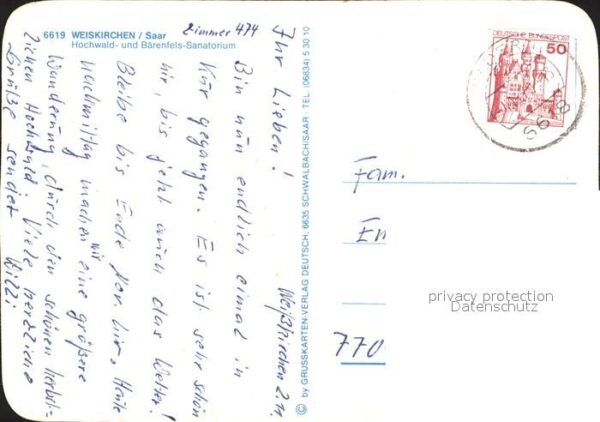 6619 WEISKIRCHEN / Saar
Hochwald- und Bärenfels-Sanatorium
Zimmer 474
Weißkirchen 2.11.
Ihr Lieben!
Bin nun endlich einmal in
Kur gegangen. Es ist sehr schön
hier, bis jetzt auch das Wetter!
Bleibe bis Ende Nov. hier. Heute
nachmittag machen wir eine größere
Wanderung durch den schönen herbst-
lichen Hochwald. Viele herzliche
Grüße sendet
Willi
© by GRUSSKARTEN-VERLAG DEUTSCH, 6635 SCHWALBACH/SAAR · TEL. (06834) 5 30 10
DEUTSCHE BUNDESPOST
50
Fam.
En
770
privacy protection
Datenschutz